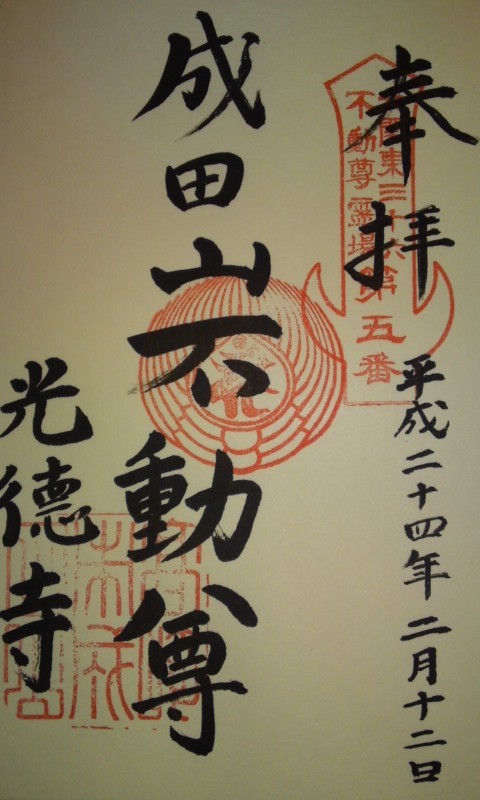 奉拝
平成二十四年二月十二日
関東三十六
不動尊霊場
第五番
成田山不動尊
光徳寺